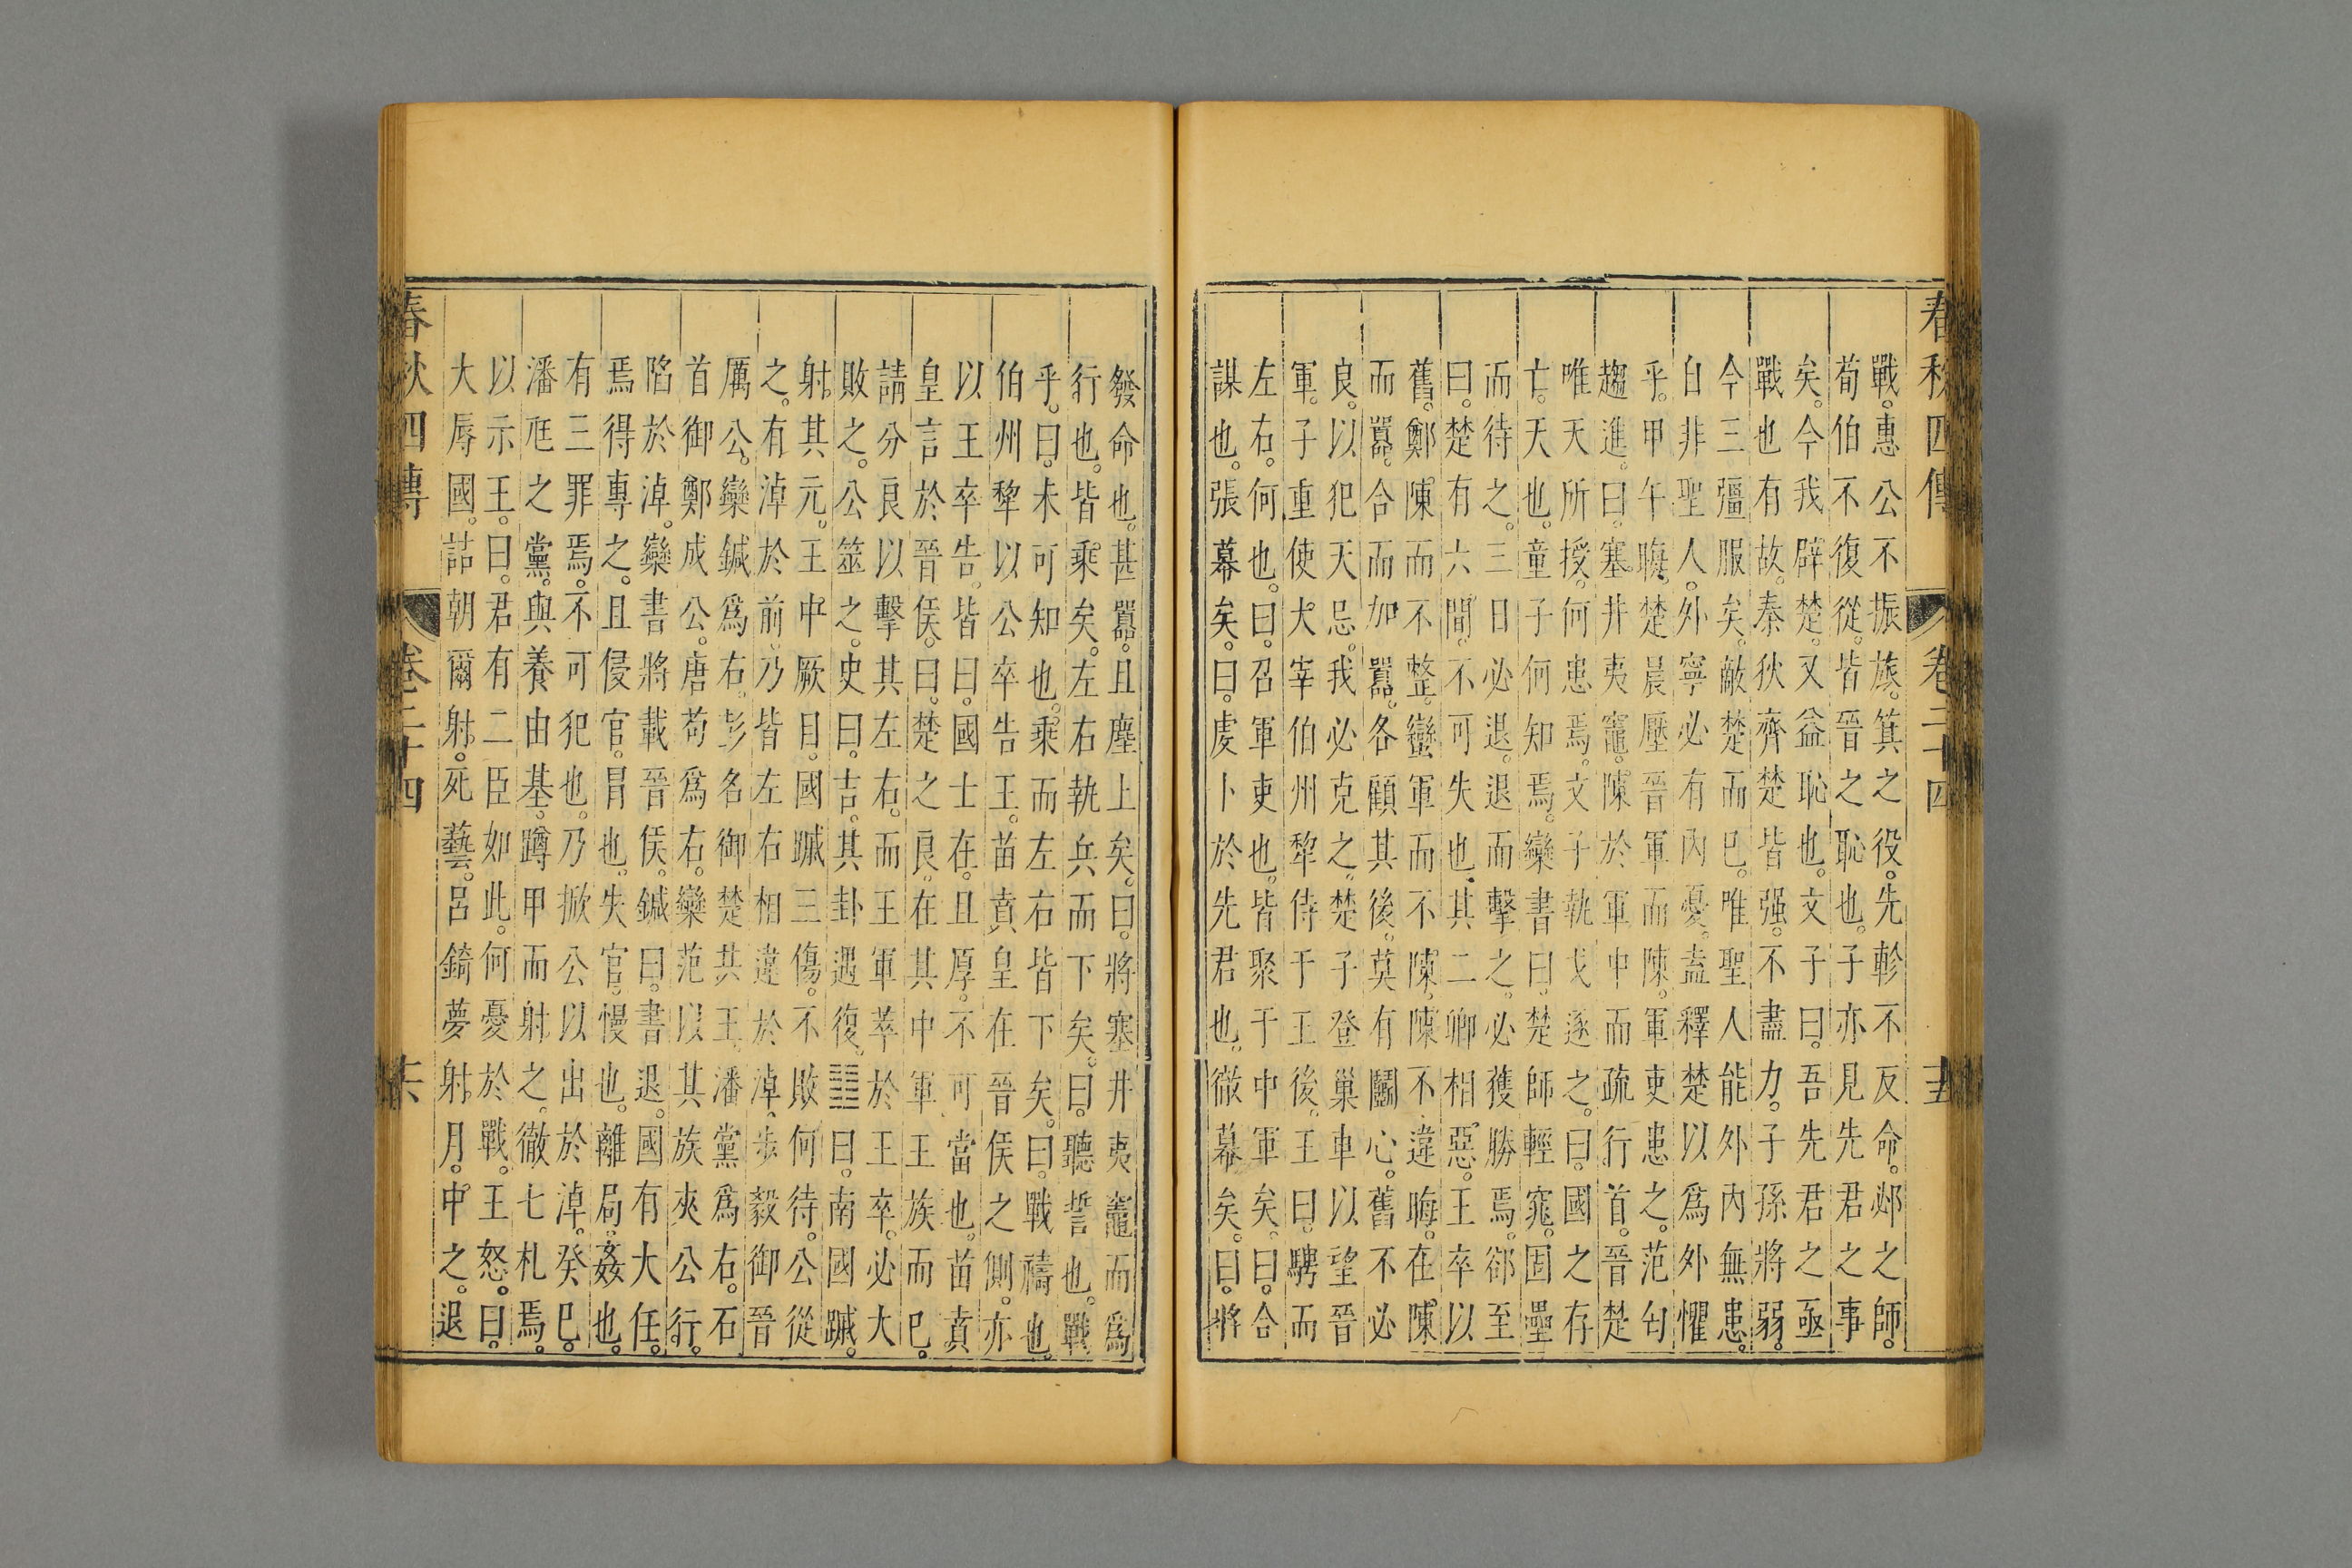 春秋四傳 卷二十四 十五
戰。惠公不振旅。箕之役。先軫不反命。邲之師。
荀伯不復從。皆晉之恥也。子亦見先君之事
矣。今我辟楚。又益恥也。文子曰。吾先君之亟
戰也有故。秦狄齊楚皆强。不盡力。子孫將弱。
今三彊服矣。敵楚而巳。唯聖人能外內無患。
自非聖人。外寧必有內憂。盍釋楚以爲外懼
乎。甲午晦。楚晨壓晉軍而陳。軍吏患之。范匄
趨進。曰。塞井夷竈。陳於軍中而疏行首。晉楚
唯天所授。何患焉。文子執戈逐之。曰。國之存
亡。天也。童子何知焉。欒書曰。楚師輕窕。固壘
而待之。三日必退。退而擊之。必獲勝焉。郤至
曰。楚有六間。不可失也。其二卿相惡。王卒以
舊。鄭陳而不整。蠻軍而不陳。陳不違晦。在陳
而嚚。合而加嚚。各顧其後。莫有鬭心。舊不必
良。以犯天忌。我必克之。楚子登巢車以望晉
軍。子重使大宰伯州犂侍于王後。王曰。騁而
左右。何也。曰。召軍吏也。皆聚于中軍矣。曰。合
謀也。張幕矣。曰。虔卜於先君也。徹幕矣。曰。將
發命也。甚嚚。且塵上矣。曰。將塞井夷竈而爲
行也。皆乘矣。左右執兵而下矣。曰。聽誓也。戰
乎。曰。未可知也。乘而左右皆下矣。曰。戰禱也。
伯州犂以公卒告王。苗賁皇在晉侯之側。亦
以王卒告。皆曰。國士在。且厚。不可當也。苗賁
皇言於晉侯。曰。楚之良。在其中軍王族而巳。
請分良以擊其左右。而王軍萃於王卒。必大
敗之。公筮之。史曰。吉。其卦遇復。䷗曰。南國䠞。
射其元。王中厥目。國䠞三傷。不敗何待。公從
之。有淖於前。乃皆左右相違於淖。步毅御晉
厲公。欒鍼爲右。彭名御楚共王。潘黨爲右。石
首御鄭成公。唐苟爲右。欒范以其族夾公行。
陷於淖。欒書將載晉侯。鍼曰。書退。國有大任。
焉得專之。且侵官。冒也。失官。慢也。離局。姦也。
有三罪焉。不可犯也。乃掀公以出於淖。癸巳。
潘尫之黨。與養由基。蹲甲而射之。徹七札焉。
以示王。曰。君有二臣如此。何憂於戰。王怒。曰。
大辱國。詰朝爾射。死藝。呂錡夢射月。中之。退
春秋四傳 卷二十四 十六